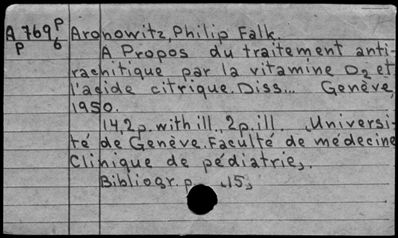 A 769 P Aronowitz, Philip Falk.
P 6 A Propos du traitement anti-
rachitique par la vitamine D2 et
l'acide citrique. Diss... Genève,
1950.
14,2p. with ill., 2p. ill. (Universi-
té de Genève. Faculté de médecine
Clinique de pédiatrie).
Bibliogr. p. (15)